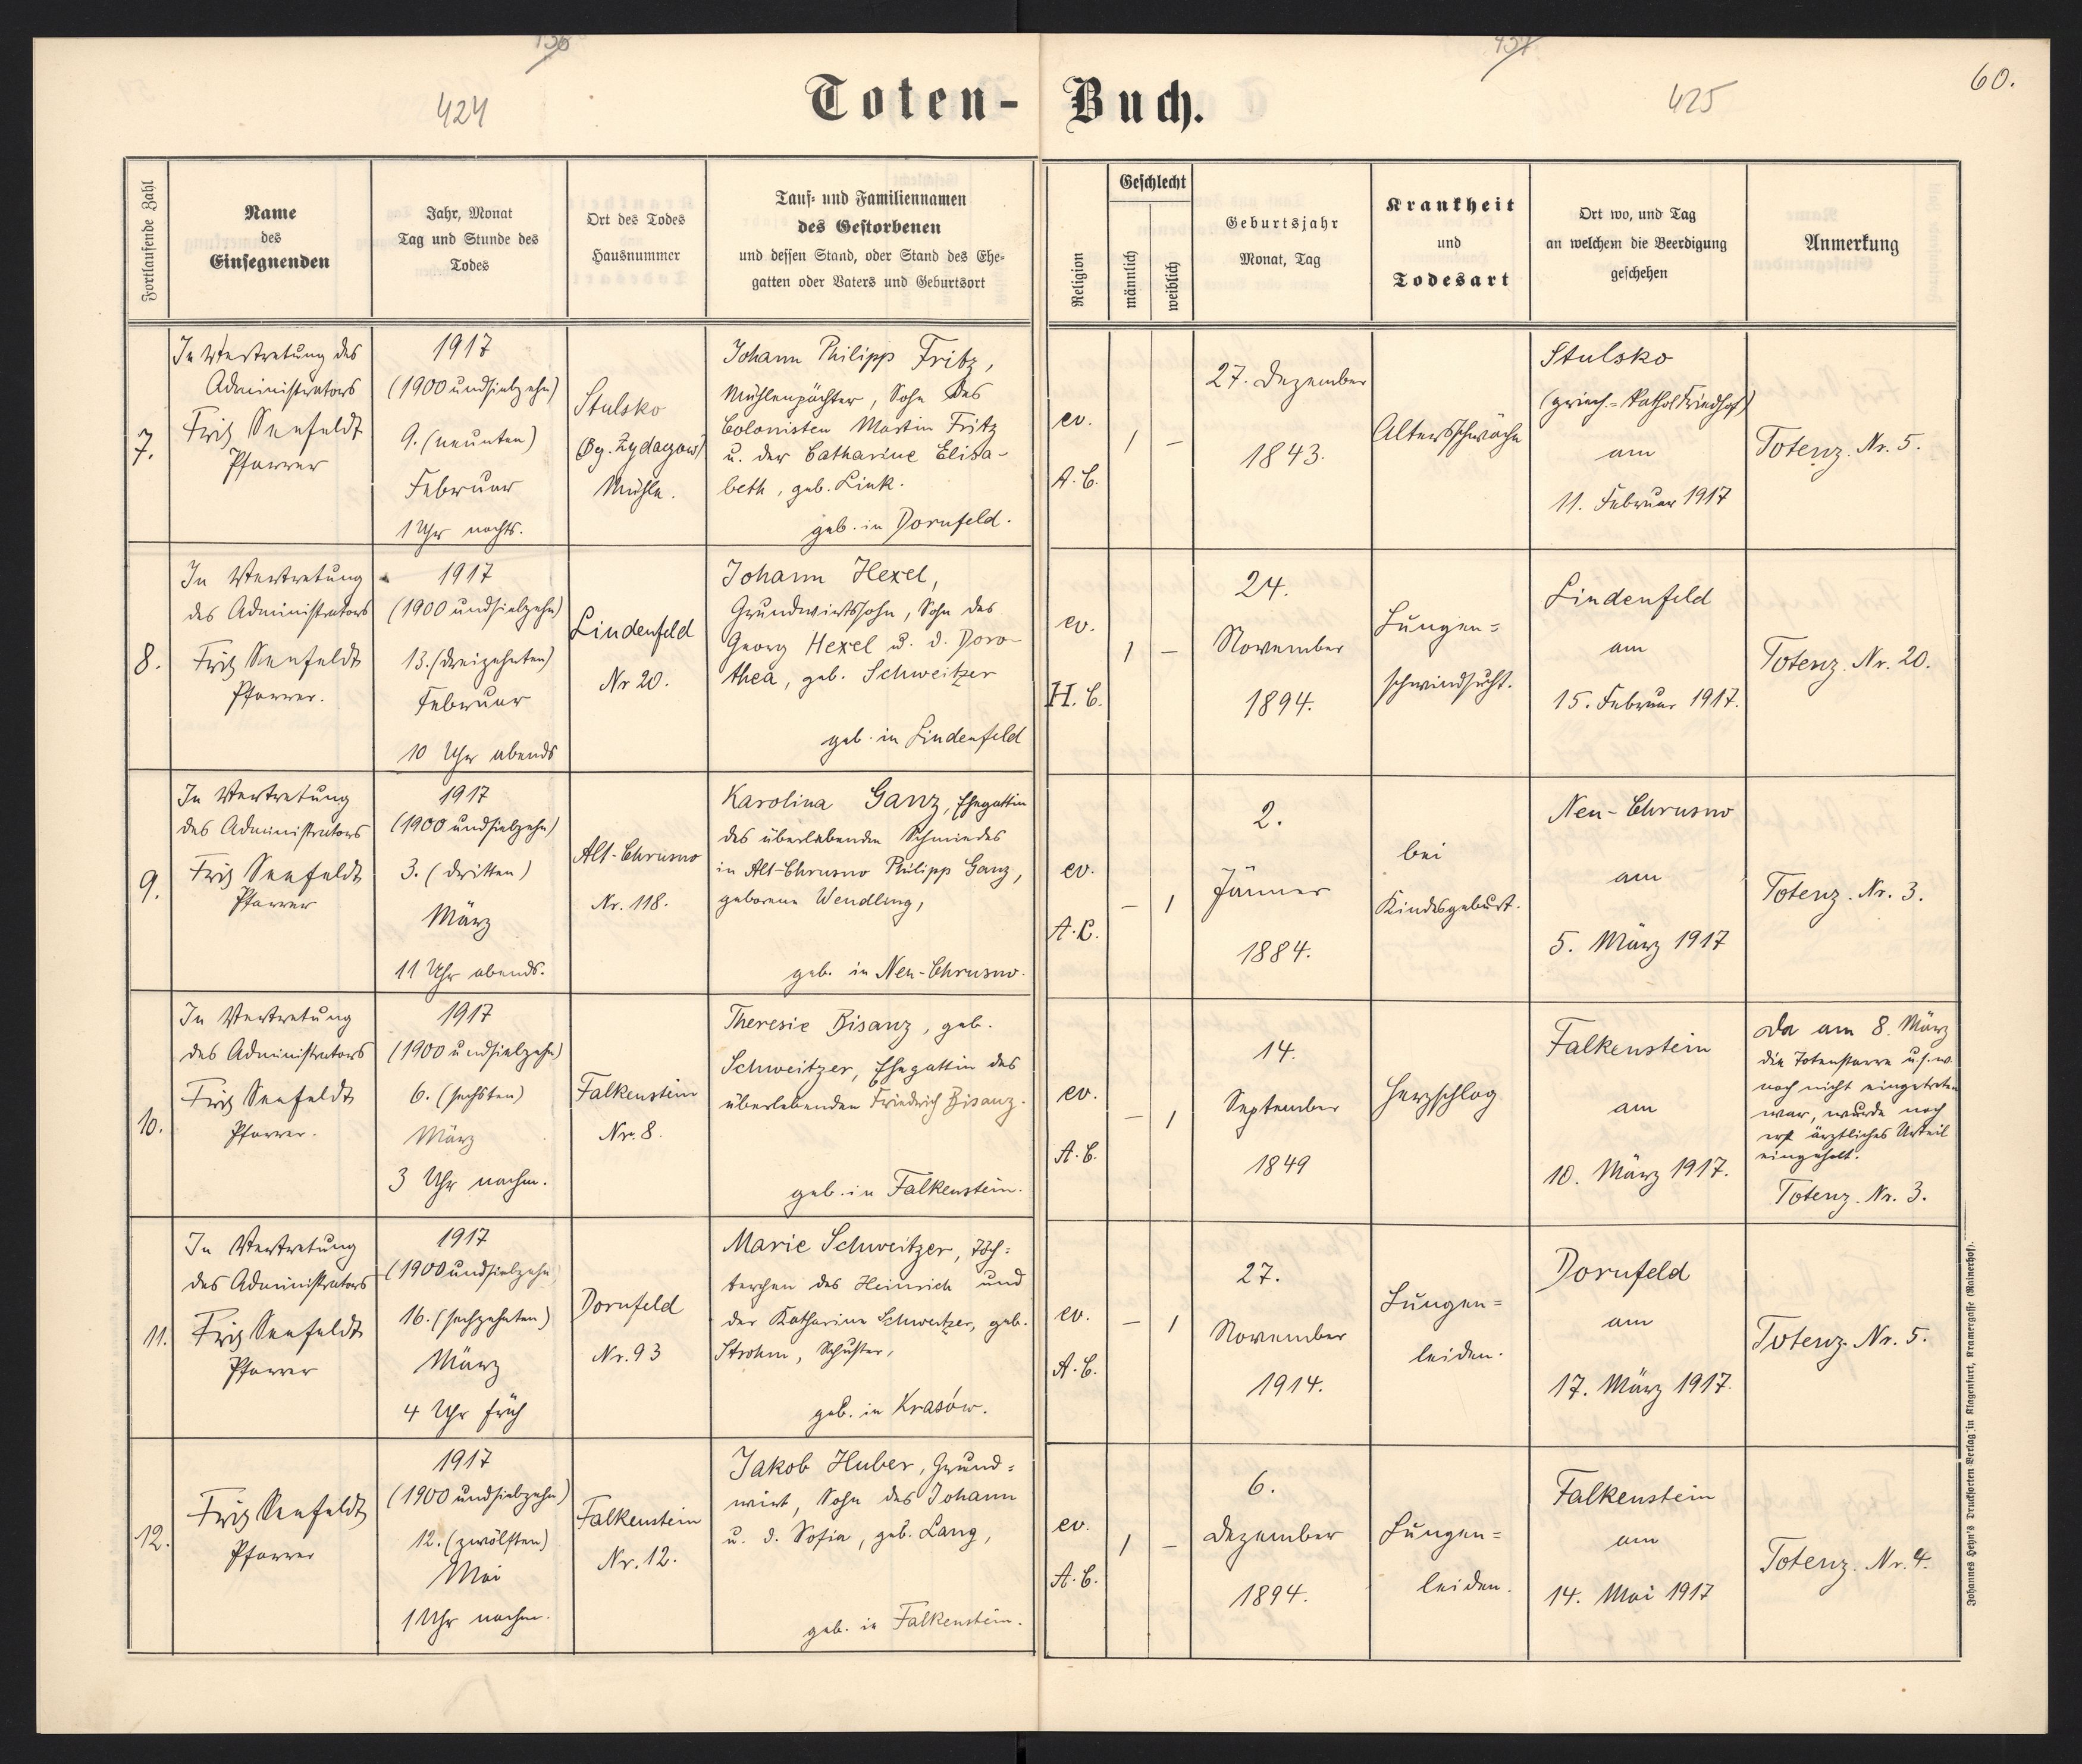 424
Toten-
Buch.
425
60.
Fortlaufende Zahl
Name
des
Einsegnenden
Jahr, Monat
Tag und Stunde des
Todes
Ort des Todes
Hausnummer
Tauf- und Familiennamen
des Gestorbenen
und dessen Stand, oder Stand des Ehe-
gatten oder Vaters und Geburtsort
Religion
Geschlecht
männlich
weiblich
Geburtsjahr
Monat, Tag
Krankheit
und
Todesart
Ort wo, und Tag
an welchem die Beerdigung
geschehen
Anmerkung
7.
In Vertretung des
Administrators
Fritz Senfeldt
Pfarrer
1917
(1900 undsiebzehn)
9. (neunten)
Februar
1 Uhr nachts.
Stulsko
(Bg. Zydaczow)
Mühle.
Johann Philipp Fritz,
Mühlenpächter, Sohn des
Colonisten Martin Fritz
u. der Catharine Elisa-
beth, geb. Link.
geb. in Dornfeld.
ev.
A. C.
1
–
27. Dezember
1843.
Altersschwäche
Stulsko
(griech.-kathol. Friedhof)
am
11. Februar 1917
Totenz. Nr. 5.
8.
In Vertretung
des Administrators
Fritz Senfeldt
Pfarrer.
1917
(1900 undsiebzehn)
13. (dreizehnten)
Februar
10 Uhr abends
Lindenfeld
Nr 20.
Johann Hexel,
Grundwirtssohn, Sohn des
Georg Hexel u. d. Doro-
thea, geb. Schweitzer
geb. in Lindenfeld
ev.
H. C.
1
–
24.
November
1894.
Lungen=
schwindsucht.
Lindenfeld
am
15. Februar 1917.
Totenz. Nr. 20.
9.
In Vertretung
des Administrators
Fritz Senfeldt
Pfarrer
1917
(1900 undsiebzehn)
3. (dritten)
März
11 Uhr abends.
Alt-Chrusno
Nr. 118.
Karolina Ganz, Ehegattin
des überlebenden Schmiedes
in Alt-Chrusno Philipp Ganz,
geborene Wendling,
geb. in Neu-Chrusno.
ev.
A. C.
–
1
2.
Jänner
1884.
bei
Kindsgeburt.
Neu-Chrusno
am
5. März 1917
Totenz. Nr. 3.
10.
In Vertretung
des Administrators
Fritz Senfeldt
Pfarrer.
1917
(1900 undsiebzehn)
6. (sechsten)
März
3 Uhr nachm.
Falkenstein
Nr. 8.
Theresie Bisanz, geb.
Schweitzer, Ehegattin des
überlebenden Friedrich Bisanz.
geb. in Falkenstein.
ev.
A. C.
–
1
14.
September
1849
Herzschlag
Falkenstein
am
10. März 1917.
Da am 8. März
die Totenstarre u.s.w.
noch nicht eingetreten
war, wurde noch
erst ärztliches Urteil
eingeholt.
Totenz. Nr. 3.
11.
In Vertretung
des Administrators
Fritz Senfeldt
Pfarrer
1917
(1900 undsiebzehn
16. (sechzehnten)
März
4 Uhr früh
Dornfeld
Nr. 93
Marie Schweitzer, Töch=
terchen des Heinrich und
der Katharine Schweitzer, geb.
Strohm, Schuster,
geb. in Krasów.
ev.
A. C.
–
1
27.
November
1914.
Lungen=
leiden.
Dornfeld
am
17. März 1917.
Totenz. Nr. 5.
12.
Fritz Senfeldt
Pfarrer
1917
(1900 undsiebzehn)
12. (zwölften)
Mai
1 Uhr nachm.
Falkenstein
Nr. 12.
Jakob Huber, Grund=
wirt, Sohn des Johann
u. d. Sofia, geb. Lang,
geb. in Falkenstein.
ev.
A. C.
1
–
6.
Dezember
1894.
Lungen=
leiden.
Falkenstein
am
14. Mai 1917
Totenz. Nr. 4.
Johannes Heyn's Drucksorten-Verlag in Klagenfurt, Kramergasse (Rainerhof).